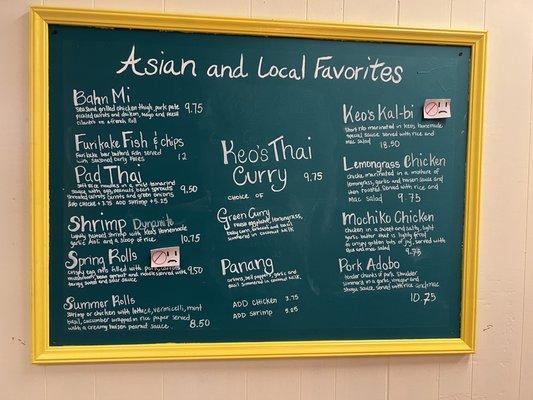 Asian and Local Favorites
Bahn Mi
grilled chicken thigh, pork pate 9.75
pickled carrots and daikon, mayo and fresh
cilantro on a french roll
Furikake Fish & chips
Furikake bar fish served
with seasoned curly fries 12
Pad Thai
soft rice noodles in a mild tamarind
sauce with egg, peanuts, bean sprouts 9.50
shredded carrots and green onions
Add chicken +3.75 Add shrimp +5.25
Shrimp Dynamite
lightly panned shrimp with Keo's homemade
garlic Aioli and a scoop of rice 10.75
Spring Rolls
crispy egg rolls filled with pork, carrots
mushroom, bean sprout and noodle served with 9.50
tangy sweet and sour sauce
Summer Rolls
shrimp or chicken with lettuce, vermicelli, mint
basil, cucumber wrapped in rice paper served
with a creamy peanut sauce. 8.50
Keo's Thai
Curry 9.75
CHOICE OF
Green Curry
fresh eggplant, lemongrass,
baby corn, broccoli and basil
simmered in coconut milk
Panang
onions, bell peppers, garlic and
basil simmered in coconut milk
ADD CHICKEN 3.75
ADD SHRIMP 5.25
Keo's Kal-bi
Short rib marinated in Keo's homemade
special sauce served with rice and
mac salad 18.50
Lemongrass Chicken
chicken marinated in a mixture of
lemongrass, garlic and sauce and
then roasted Served with rice and
mac salad 9.75
Mochiko Chicken
chicken in a sweet and salty, light
garlic batter that is lightly fried
to crispy golden bits of joy, served with
rice and mac salad 9.75
Pork Adobo
tender chunks of pork shoulder
simmered in a garlic, vinegar and
shoyu sauce, served with rice and mac
10.75